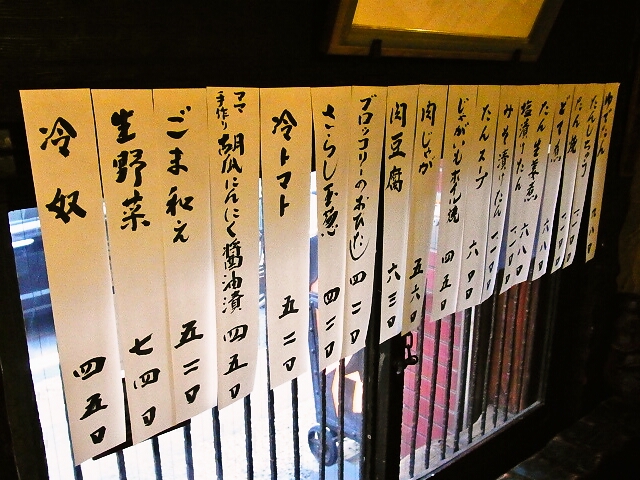 ゆでたん 九八〇
たんしちゅう
たん焼
どて焼
たん生姜煮 六八〇
塩漬けたん 六八〇
みそ漬けたん 一一〇〇
たんスープ 六〇〇
じゃがいもホイル焼 四五〇
肉じゃが 五六〇
肉豆腐 六三〇
ブロッコリーのおひたし 四二〇
さらし玉葱 四二〇
冷トマト 五二〇
ママ手作り 胡瓜にんにく醤油漬 四五〇
ごま和え 五二〇
生野菜 七四〇
冷奴 四五〇